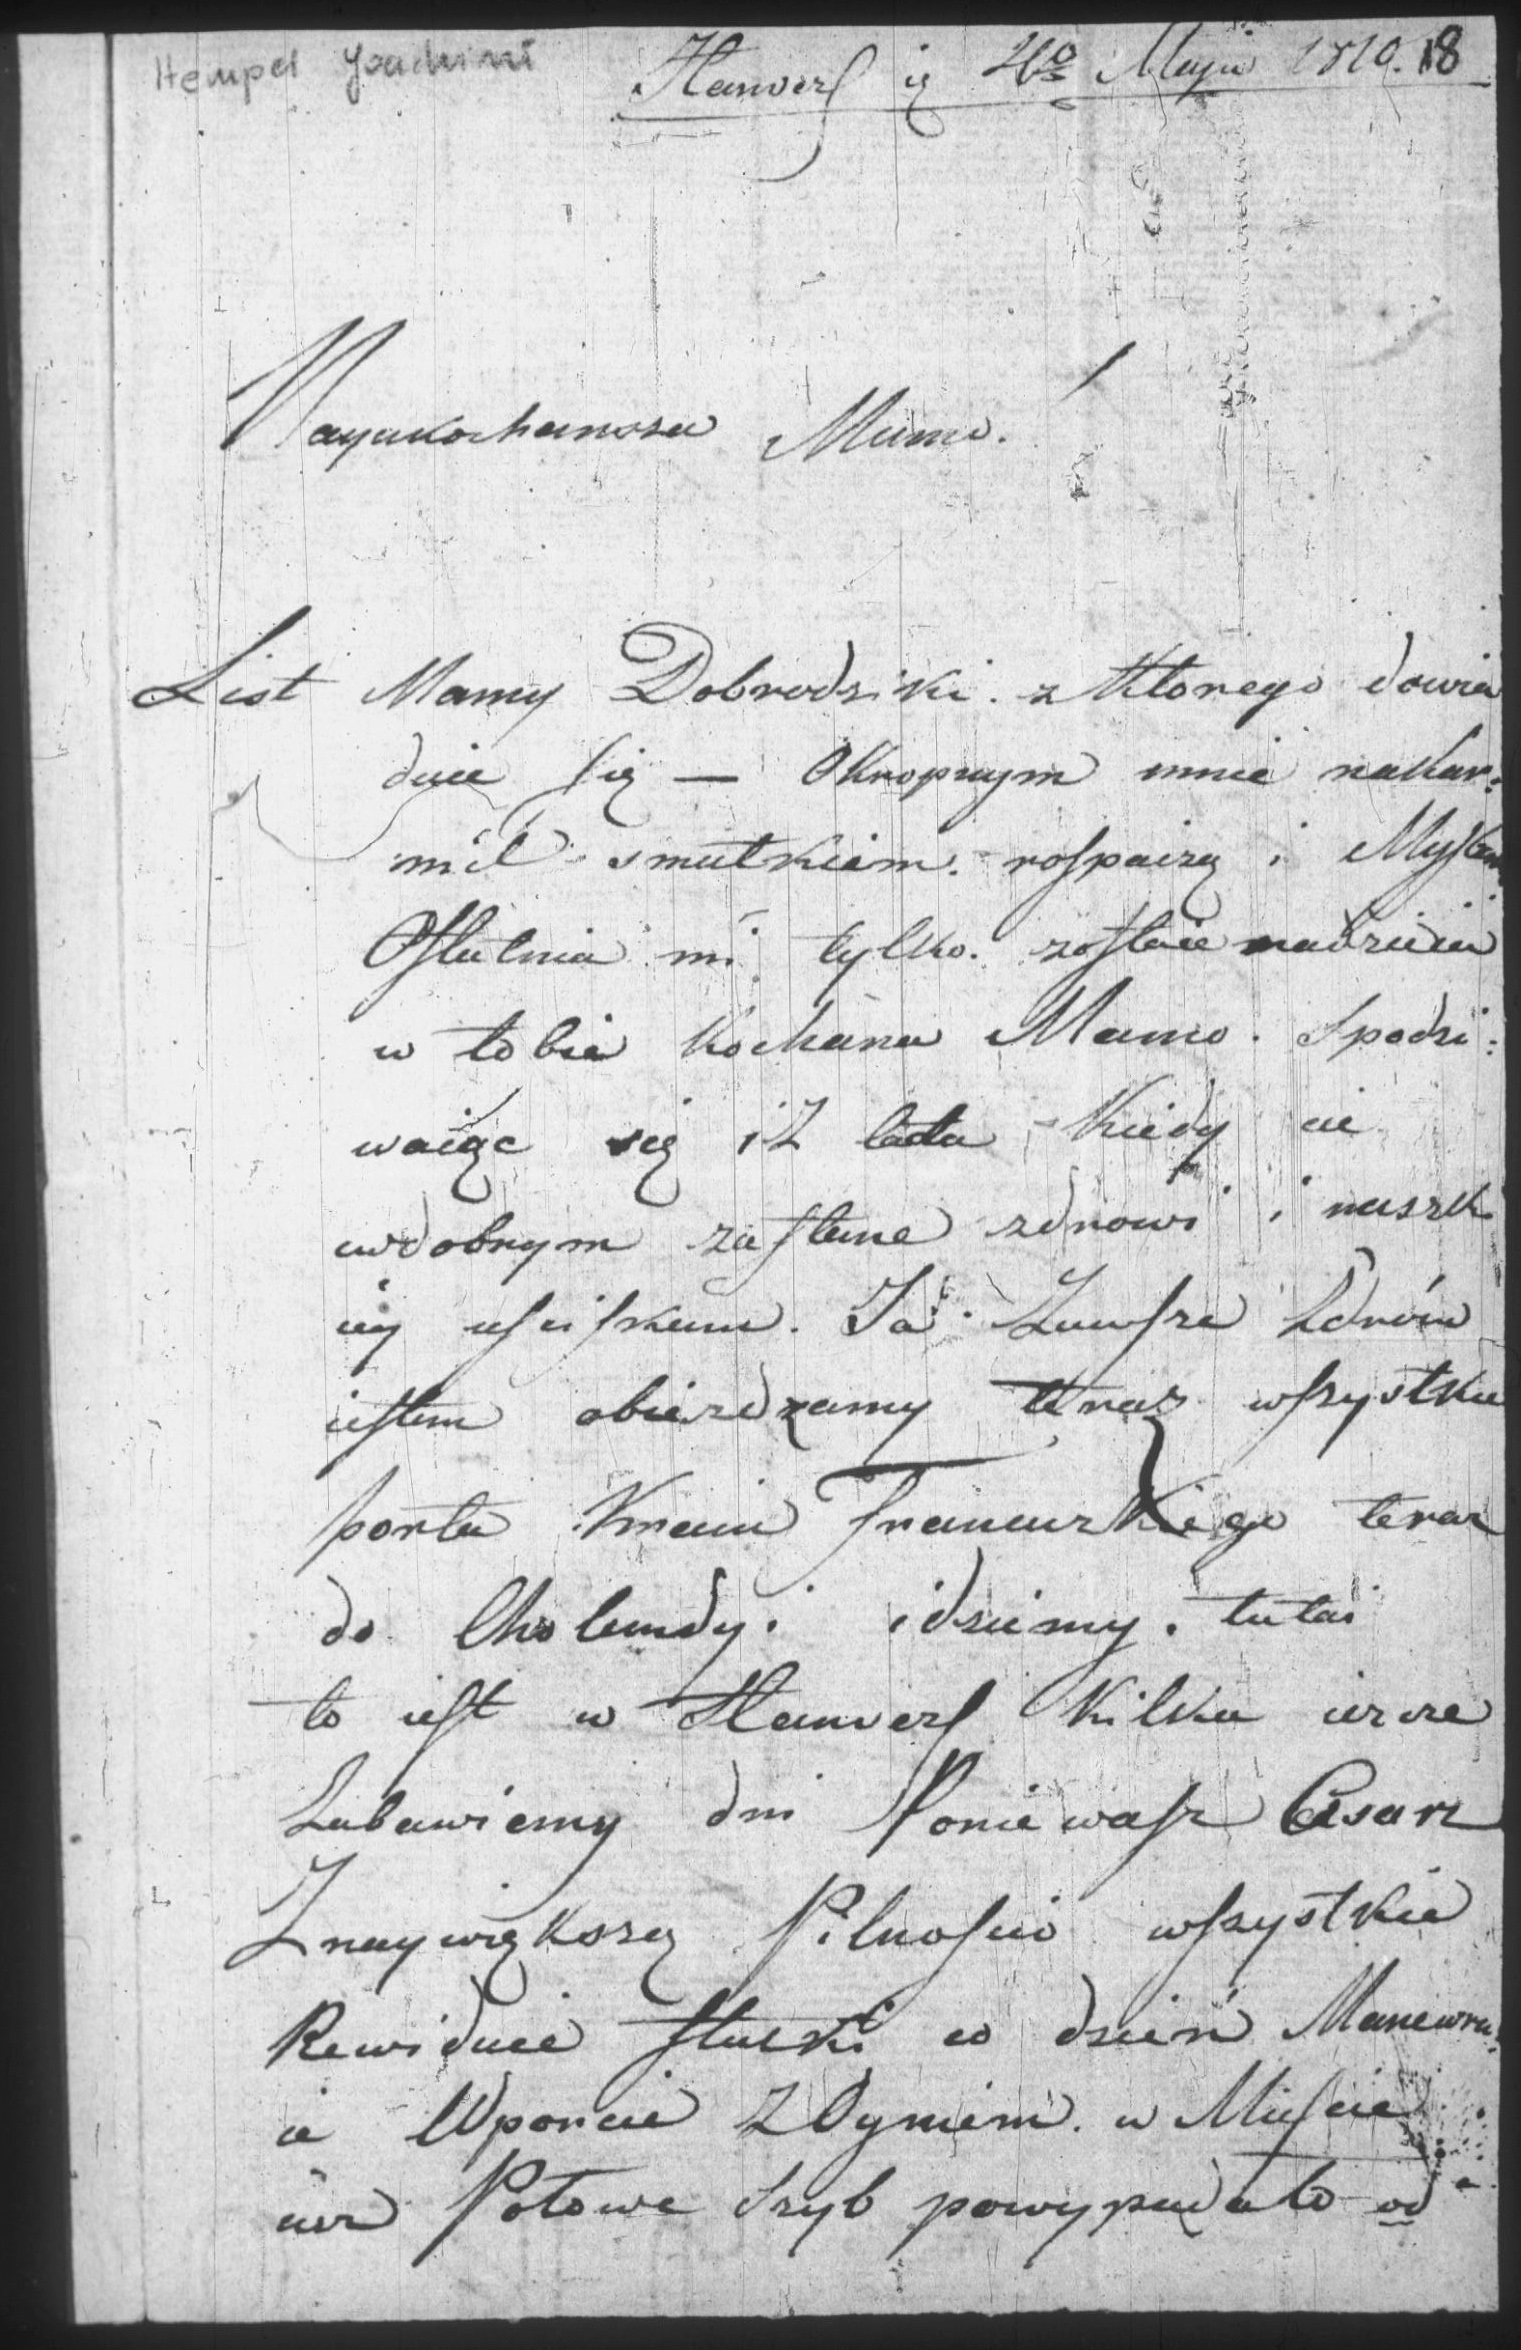 Hempel Joachim
Hanvers ię 4go Maja 1810. 18
Nayukochansza Mamo.
List Mamy Dobrodziki. z Ktorego dowia
duie się — Okropnym mnie nakar:
mił smutkiem. rospaczą i Myslem
Ostatnia mi tylko. zostaie nadzieia
w tobie kochana Mamo. Spodzi:
waiąc się iż lada kiedy cie
w dobrym zastane zdrowi i
ięy usciskam. Ja Zawsze Zdrów
iestem obiezdzamy teraz wszystkie
porta Kraiu Francuzkiego teraz
do Cholandy. idziemy. tutai
to iest w Hanvers Kilka ieszcze
Zabawiemy dni Poniewasz Cesarz
Znaywiększą Pilnoscio wszystkie
Rewiduie statki co dzień Manewru:
ie Wporcie Z Ogniem. w Miescie
iuz Połowe szyb powypadało od